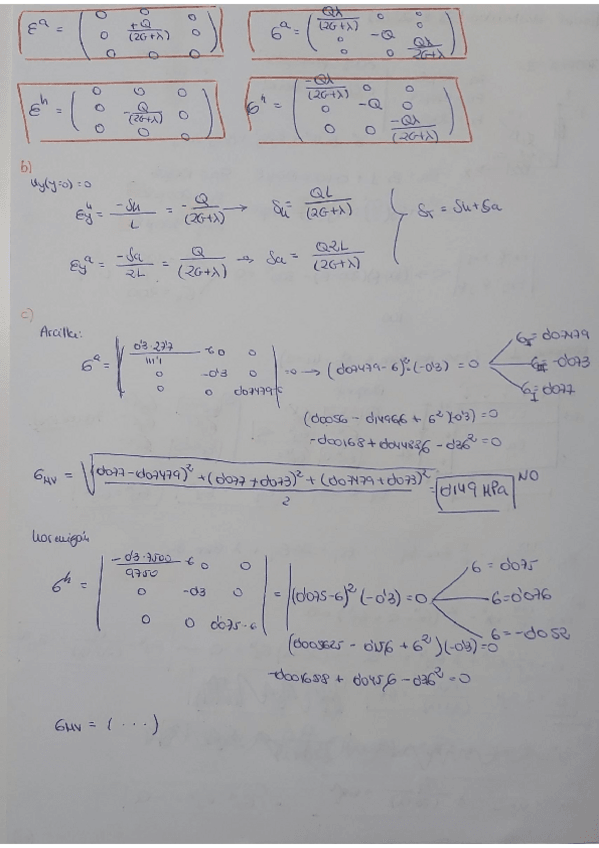 εᵃ = ( 0 0 0 / 0 +Q/(2G+λ) 0 / 0 0 0 ) σᵃ = ( Qλ/(2G+λ) 0 0 / 0 -Q 0 / 0 0 Qλ/(2G+λ) )
εʰ = ( 0 0 0 / 0 -Q/(2G+λ) 0 / 0 0 0 ) σʰ = ( -Qλ/(2G+λ) 0 0 / 0 -Q 0 / 0 0 -Qλ/(2G+λ) )
b)
uy(y=0)=0
εyʰ = -δh/L = -Q/(2G+λ) → δh = QL/(2G+λ)
δT = δh+δa
εyᵃ = -δa/2L = Q/(2G+λ) → δa = Q2L/(2G+λ)
c)
Arcilla:
σᵃ = | 0'3·277/1111 -σ 0 0 / 0 -0'3 0 / 0 0 0'07479-σ | =0 → (0'07479-σ)²·(-0'3) = 0
σII = 0'07479
σIII = -0'073
σI = 0'077
(0'0056 - 0'1496σ + σ²)(-0'3) = 0
-0'00168 + 0'04488σ - 0'3σ² = 0
σMV = √( ((0'077-0'07479)² + (0'077+0'073)² + (0'07479+0'073)²) / 2 ) = 0,149 MPa NO
Hormigón
σʰ = | -0'3·7500/9750 -σ 0 0 / 0 -0'3 0 / 0 0 0'075-σ | = (0'075-σ)²(-0'3) = 0
σ = 0'075
σ = 0'076
σ = -0'052
(0'005625 - 0'15σ + σ²)(-0'3) = 0
-0'001688 + 0'045σ - 0'3σ² = 0
σMV = (...)